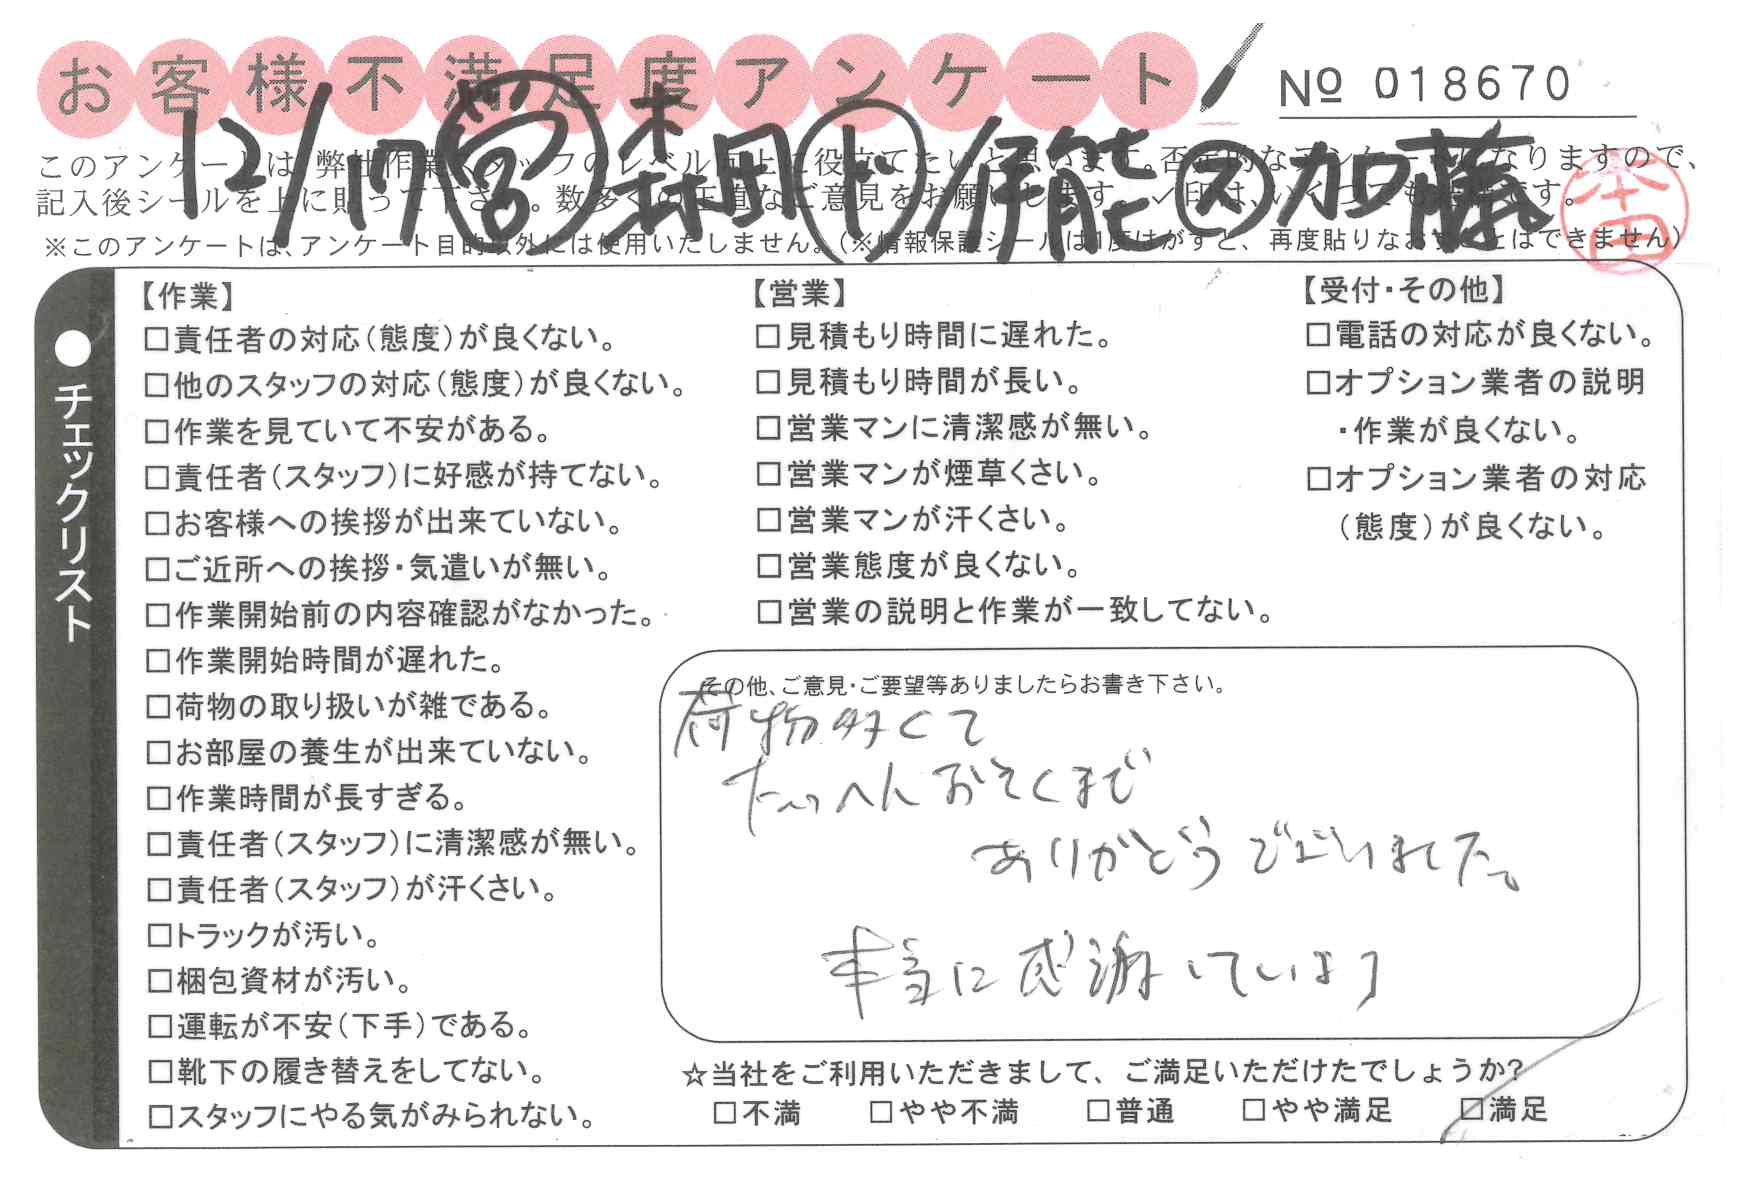 お客様不満足度アンケート
No 018670
12/17 営 森田 ド 伊能 ス 加藤
本田
このアンケートは、弊社作業スタッフのレベル向上に役立てたいと思います。否定的なアンケートになりますので、
記入後シールを上に貼って下さい。数多くの正直なご意見をお願いします。✓印は、いくつでも結構です。
※このアンケートは、アンケート目的以外には使用いたしません。(※情報保護シールは1度はがすと、再度貼りなおすことはできません)
●チェックリスト
【作業】
□責任者の対応(態度)が良くない。
□他のスタッフの対応(態度)が良くない。
□作業を見ていて不安がある。
□責任者(スタッフ)に好感が持てない。
□お客様への挨拶が出来ていない。
□ご近所への挨拶・気遣いが無い。
□作業開始前の内容確認がなかった。
□作業開始時間が遅れた。
□荷物の取り扱いが雑である。
□お部屋の養生が出来ていない。
□作業時間が長すぎる。
□責任者(スタッフ)に清潔感が無い。
□責任者(スタッフ)が汗くさい。
□トラックが汚い。
□梱包資材が汚い。
□運転が不安(下手)である。
□靴下の履き替えをしてない。
□スタッフにやる気がみられない。
【営業】
□見積もり時間に遅れた。
□見積もり時間が長い。
□営業マンに清潔感が無い。
□営業マンが煙草くさい。
□営業マンが汗くさい。
□営業態度が良くない。
□営業の説明と作業が一致してない。
【受付・その他】
□電話の対応が良くない。
□オプション業者の説明
・作業が良くない。
□オプション業者の対応
(態度)が良くない。
その他、ご意見・ご要望等ありましたらお書き下さい。
荷物多くて
たいへんおそくまで
ありがとうございました。
本当に感謝しています
☆当社をご利用いただきまして、ご満足いただけたでしょうか?
□不満 □やや不満 □普通 □やや満足 □満足